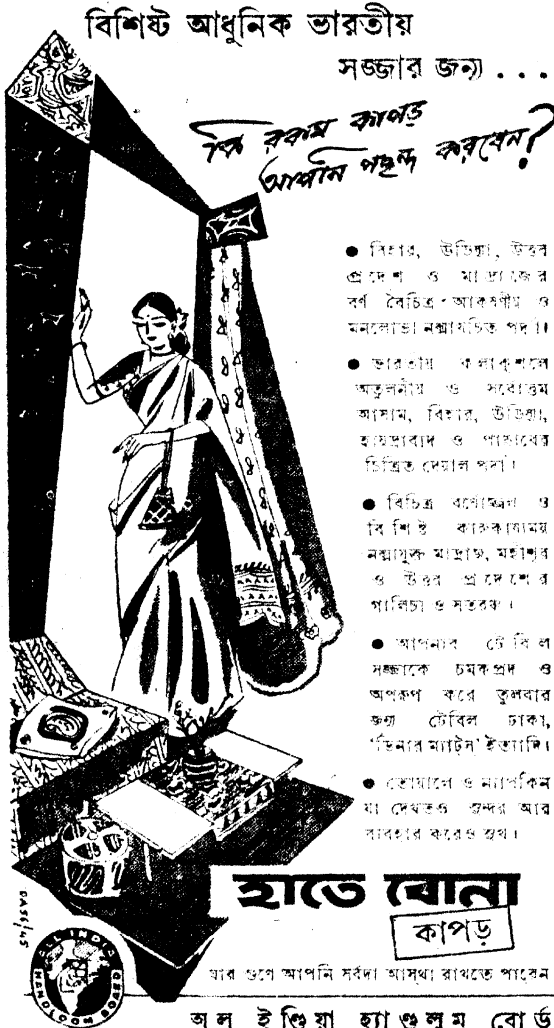 বিশিষ্ট আধুনিক ভারতীয়
সজ্জার জন্য ...
কি রকম কাপড়
আপনি পছন্দ করবেন?
● বিহার, উড়িষ্যা, উত্তর
প্রদেশ ও মাদ্রাজের
বর্ণ বৈচিত্র আকর্ষণীয় ও
মনলোভা নক্সাখচিত পর্দা।
● ভারতীয় কলাকুশলে
অতুলনীয় ও সর্বোত্তম
আসাম, বিহার, উড়িষ্যা,
হায়দ্রাবাদ ও পাঞ্জাবের
চিত্রিত দেয়াল পর্দা।
● বিচিত্র বর্ণোজ্জ্বল ও
বিশিষ্ট কারুকার্য্যময়
নক্সাযুক্ত মাদ্রাজ, মহীশূর
ও উত্তর প্রদেশের
গালিচা ও সতরঞ্চ।
● আপনার টেবিল
সজ্জাকে চমকপ্রদ ও
অপরূপ করে তুলবার
জন্য টেবিল ঢাকা,
'ডিনার ম্যাট্‌স্' ইত্যাদি।
● তোয়ালে ও ন্যাপকিন
যা দেখতেও সুন্দর আর
ব্যবহার করেও সুখ।
হাতে বোনা
কাপড়
যার গুণে আপনি সর্বদা আস্থা রাখতে পারেন
অল ইণ্ডিয়া হ্যাণ্ডলুম বোর্ড
DA 56/45
ALL INDIA
HANDLOOM BOARD